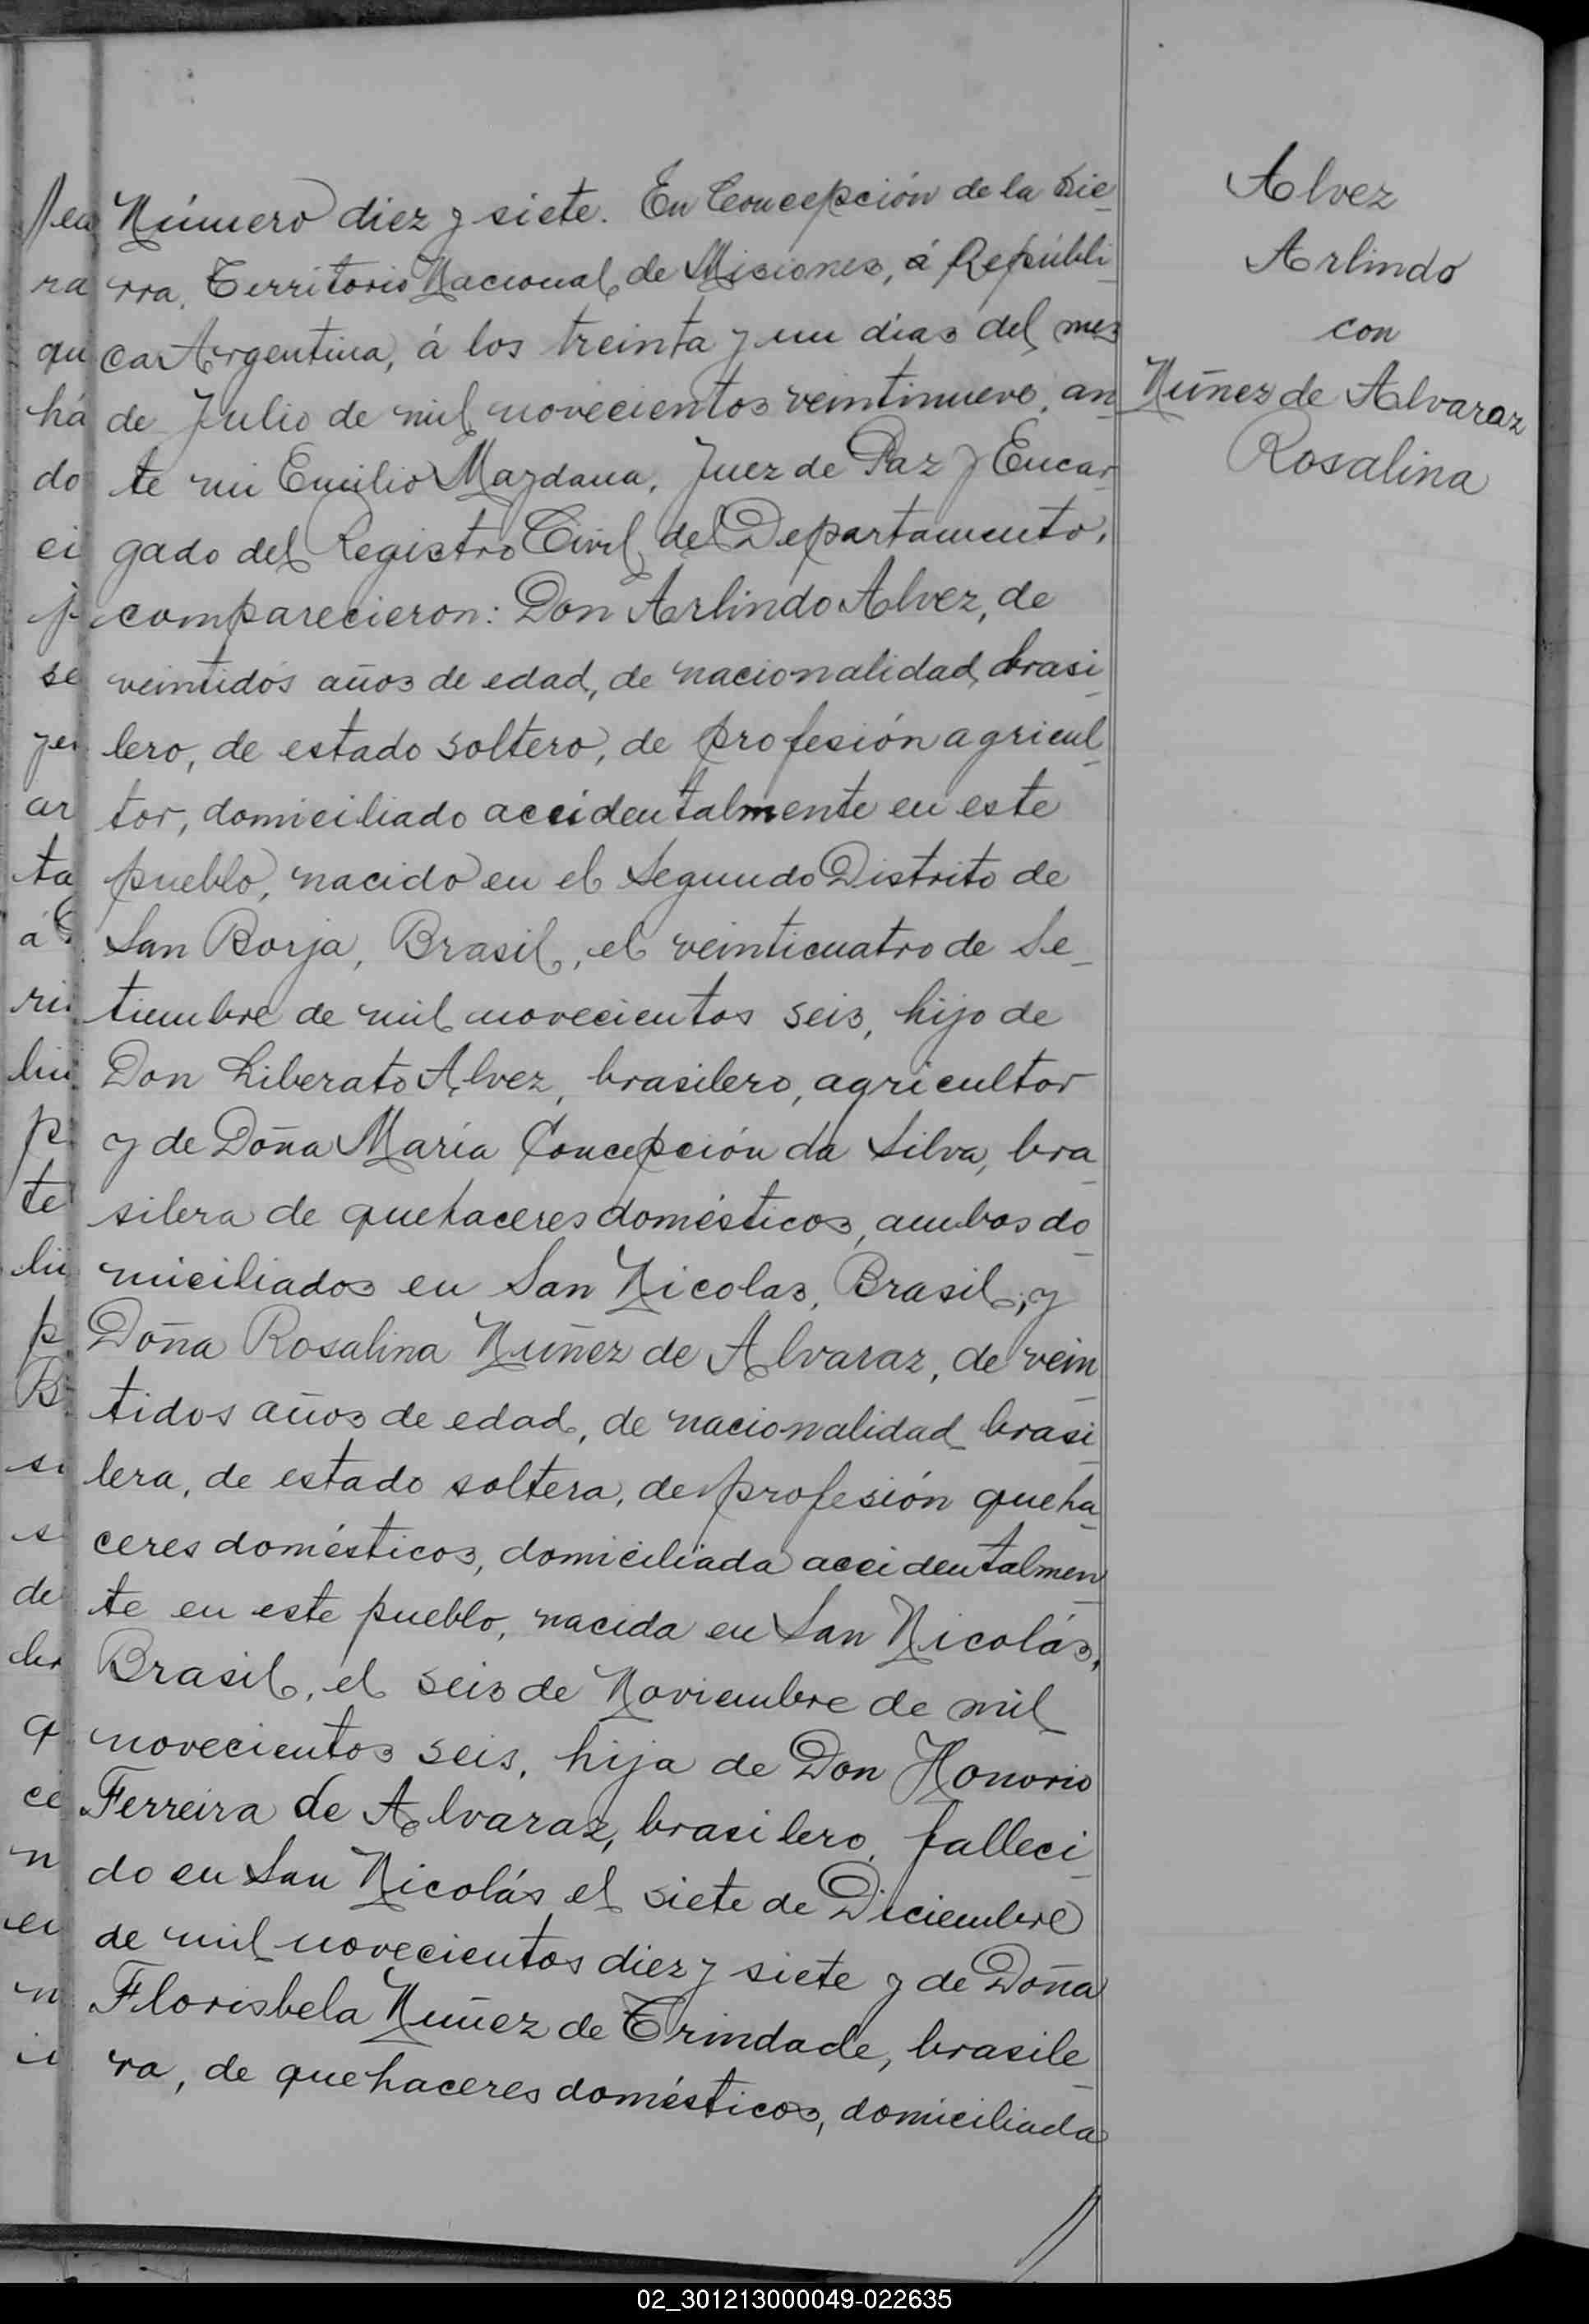 Número diez y siete. En Concepción de la Sie-
rra, Territorio Nacional de Misiones, á Repúbli-
ca Argentina, á los treinta y un dias del mes
de Julio de mil novecientos veintinueve, an-
te mi Emilio Maydana, Juez de Paz y Encar-
gado del Registro Civil del Departamento,
comparecieron: Don Arlindo Alvez, de
veintidós años de edad, de nacionalidad brasi-
lero, de estado soltero, de profesión agricul-
tor, domiciliado accidentalmente en este
pueblo, nacido en el Segundo Distrito de
San Borja, Brasil, el veinticuatro de Se-
tiembre de mil novecientos seis, hijo de
Don Liberato Alvez, brasilero, agricultor
y de Doña María Concepción da Silva, bra-
silera de quehaceres domésticos, ambos do-
miciliados en San Nicolas, Brasil; y
Doña Rosalina Nuñez de Alvaraz, de vein-
tidos años de edad, de nacionalidad brasi-
lera, de estado soltera, de profesión queha-
ceres domésticos, domiciliada accidentalmen-
te en este pueblo, nacida en San Nicolás,
Brasil, el seis de Noviembre de mil
novecientos seis, hija de Don Honorio
Ferreira de Alvaraz, brasilero, falleci-
do en San Nicolás el siete de Diciembre
de mil novecientos diez y siete y de Doña
Florisbela Nuñez de Trindade, brasile-
ra, de quehaceres domésticos, domiciliada
Alvez
Arlindo
con
Nuñez de Alvaraz
Rosalina
02_301213000049-022635